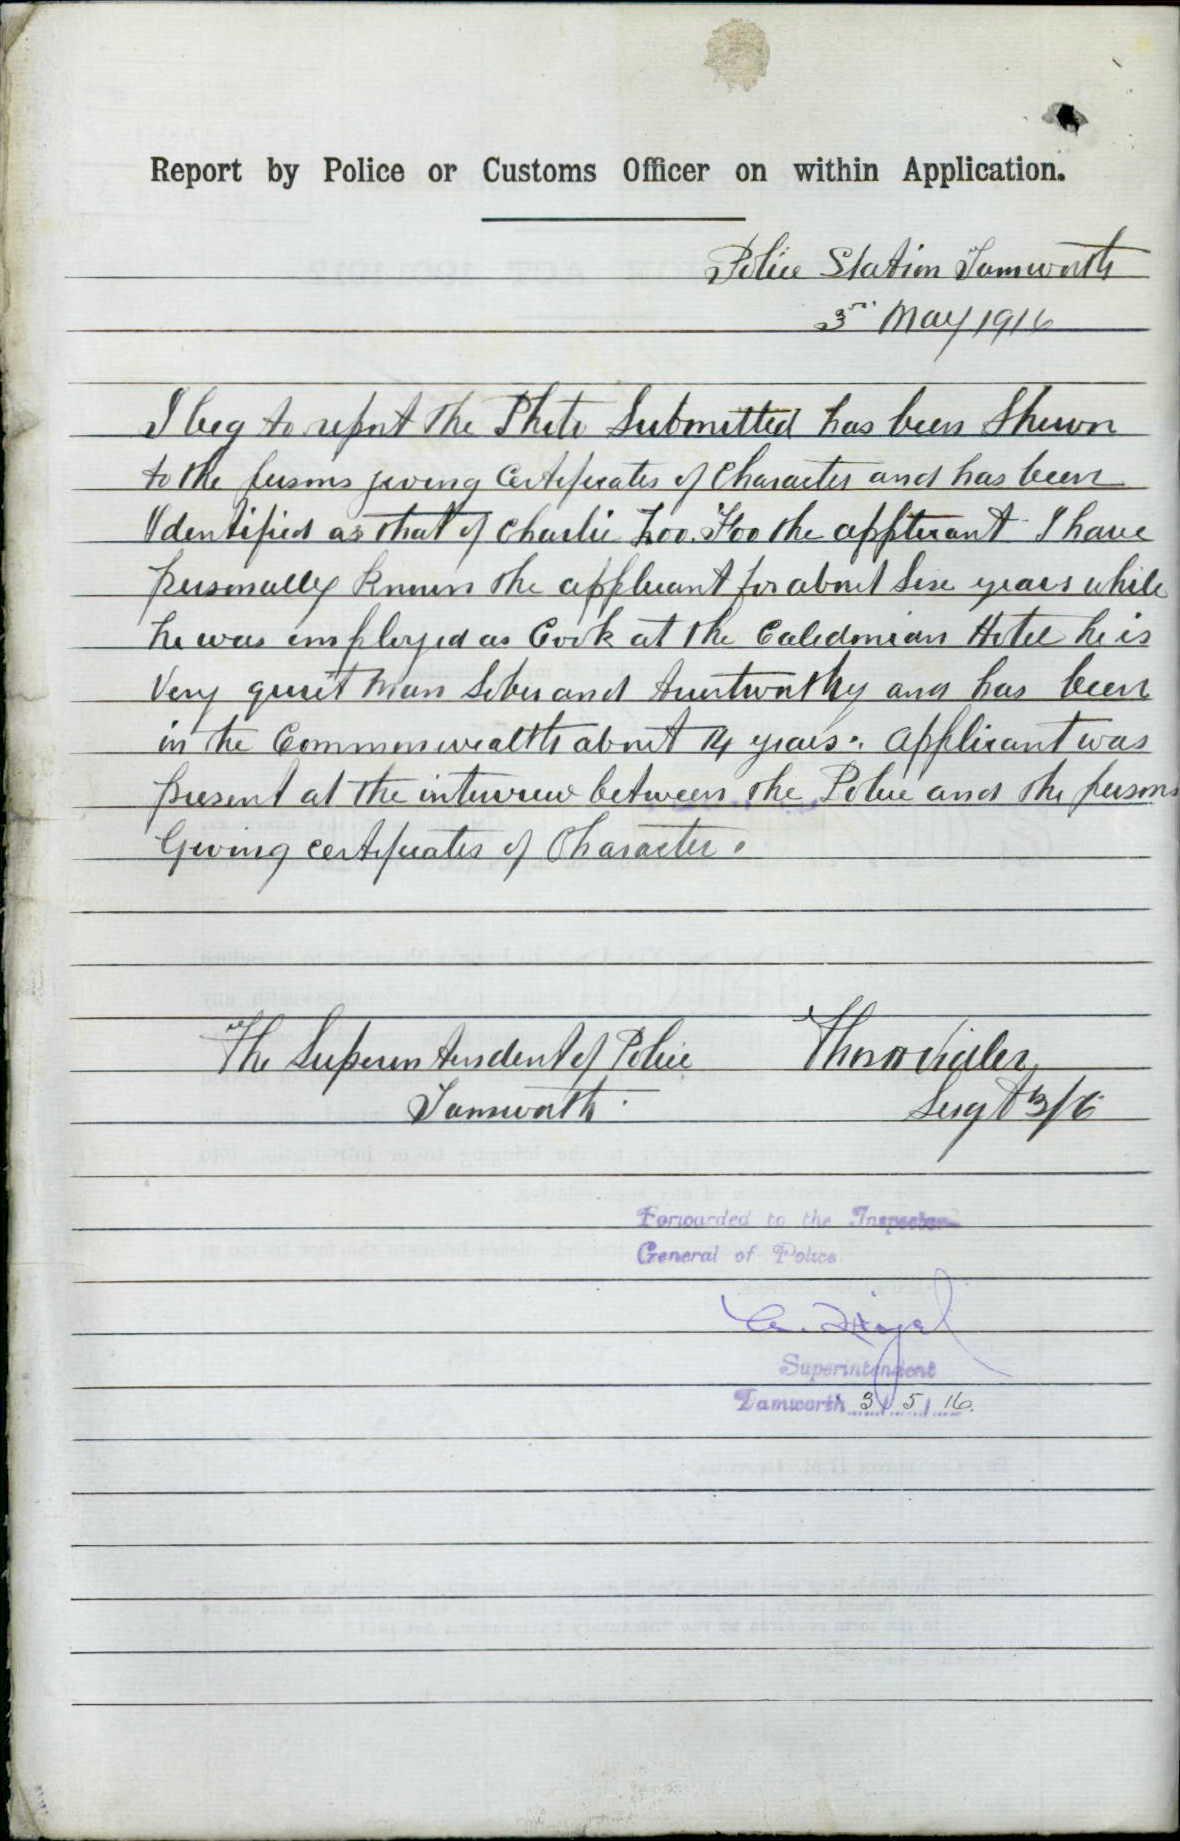 Report by Police or Customs Officer on within Application.
Police Station Tamworth
3rd May 1916
I beg to report the Photo Submitted has been Shewn
to the persons giving Certificates of Character and has been
Identified as that of Charlie Loo. Foo the applicant I have
personally known the applicant for about Six years while
he was employed as Cook at the Caledonian Hotel he is
Very quiet man Sober and trustworthy and has been
in the Commonwealth about 14 years. applicant was
present at the interview between the Police and the persons
Giving certificates of Character.
The Superintendent of Police
Tamworth
Sergt 3/C
Forwarded to the Inspector
General of Police
Superintendent
Tamworth 3/5/16.